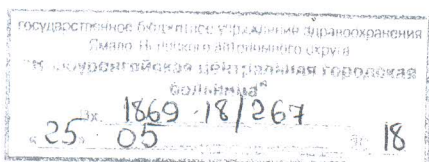 государственное бюджетное учреждение здравоохранения
Ямало-Ненецкого автономного округа
центральная городская
больница"
Вх. 1869-18/267
«25» 05 18